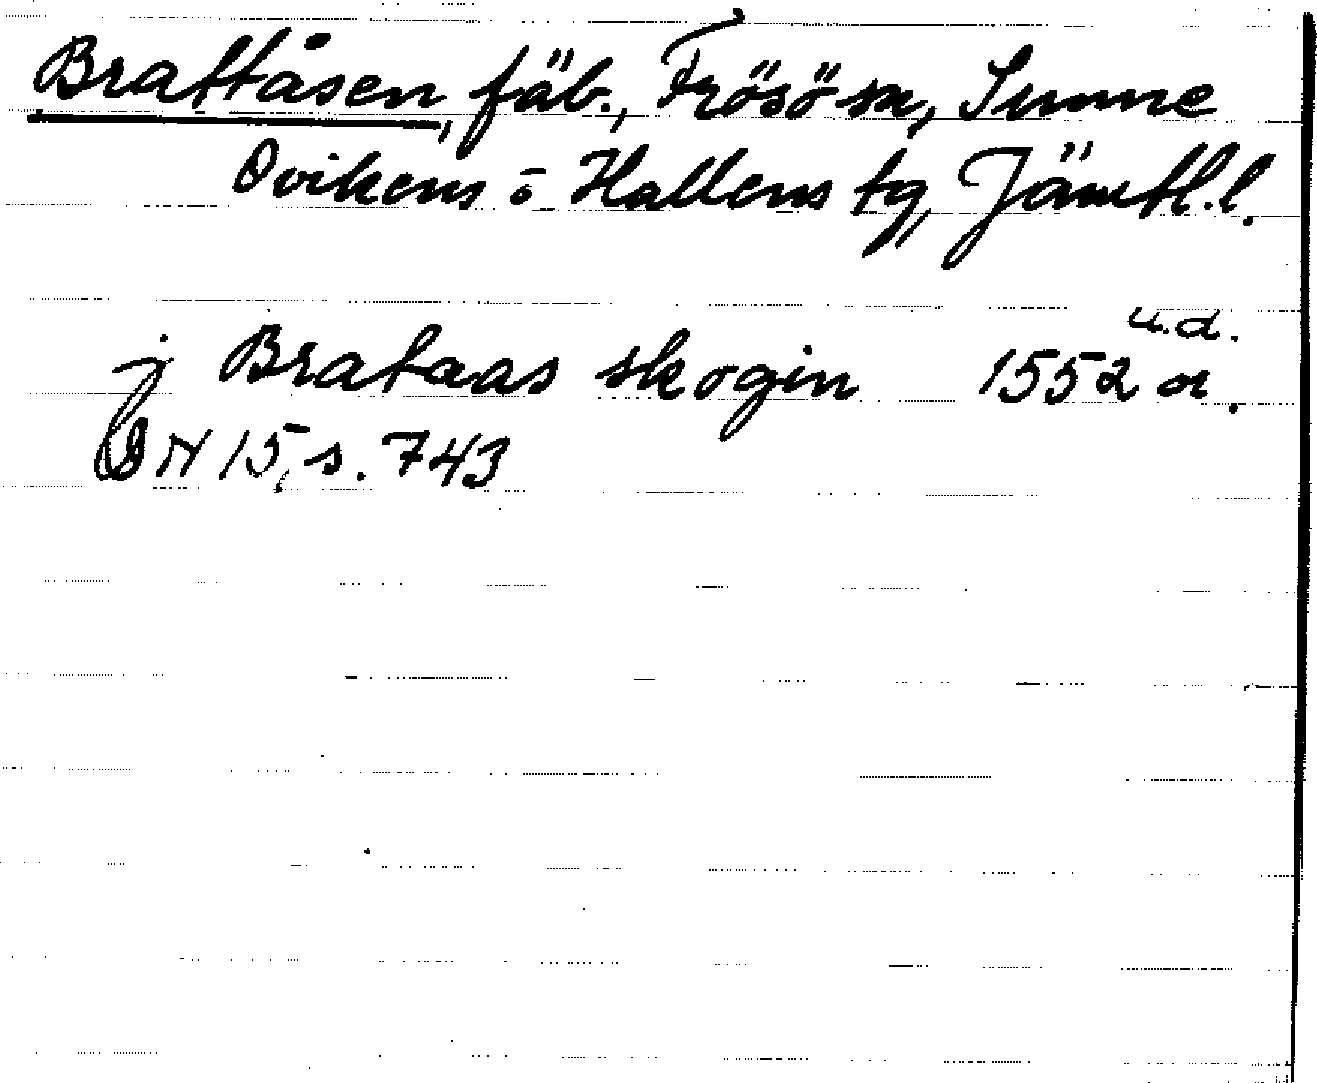 Brattåsen, fäb., Frösö sn, Sunne
Ovikens o Hallens tg, Jämtl.l.
j Brataas skogin 1552 u.d. or.
DN 15, s. 743